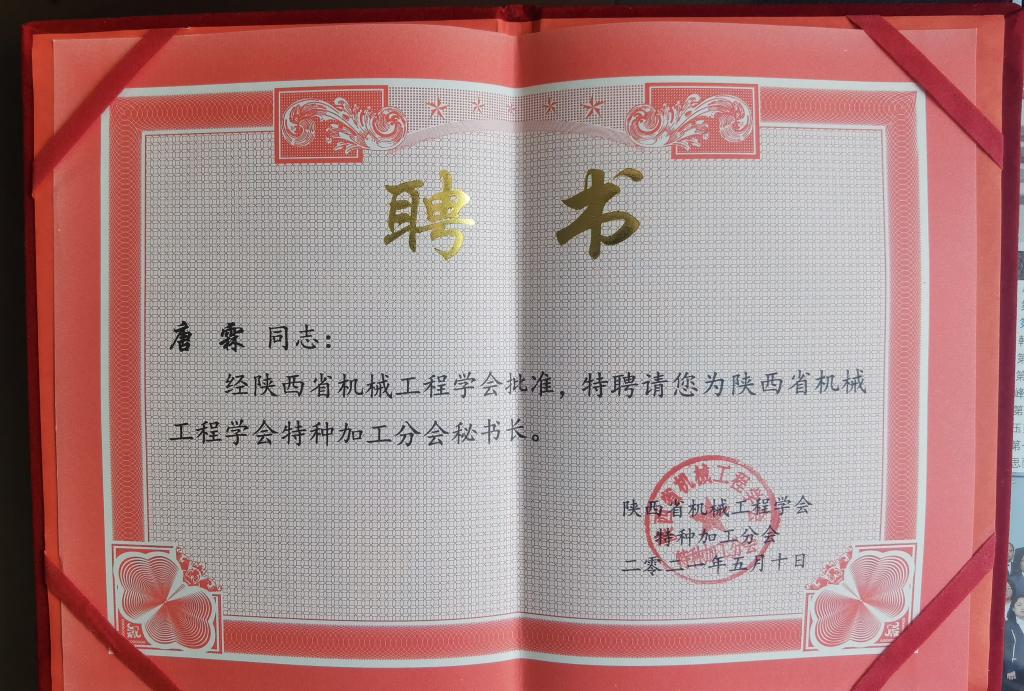 聘 书
唐 霖 同志：
经陕西省机械工程学会批准，特聘请您为陕西省机械
工程学会特种加工分会秘书长。
陕西省机械工程学会
特种加工分会
二零二一年五月十日
陕西省机械工程学会
特种加工分会